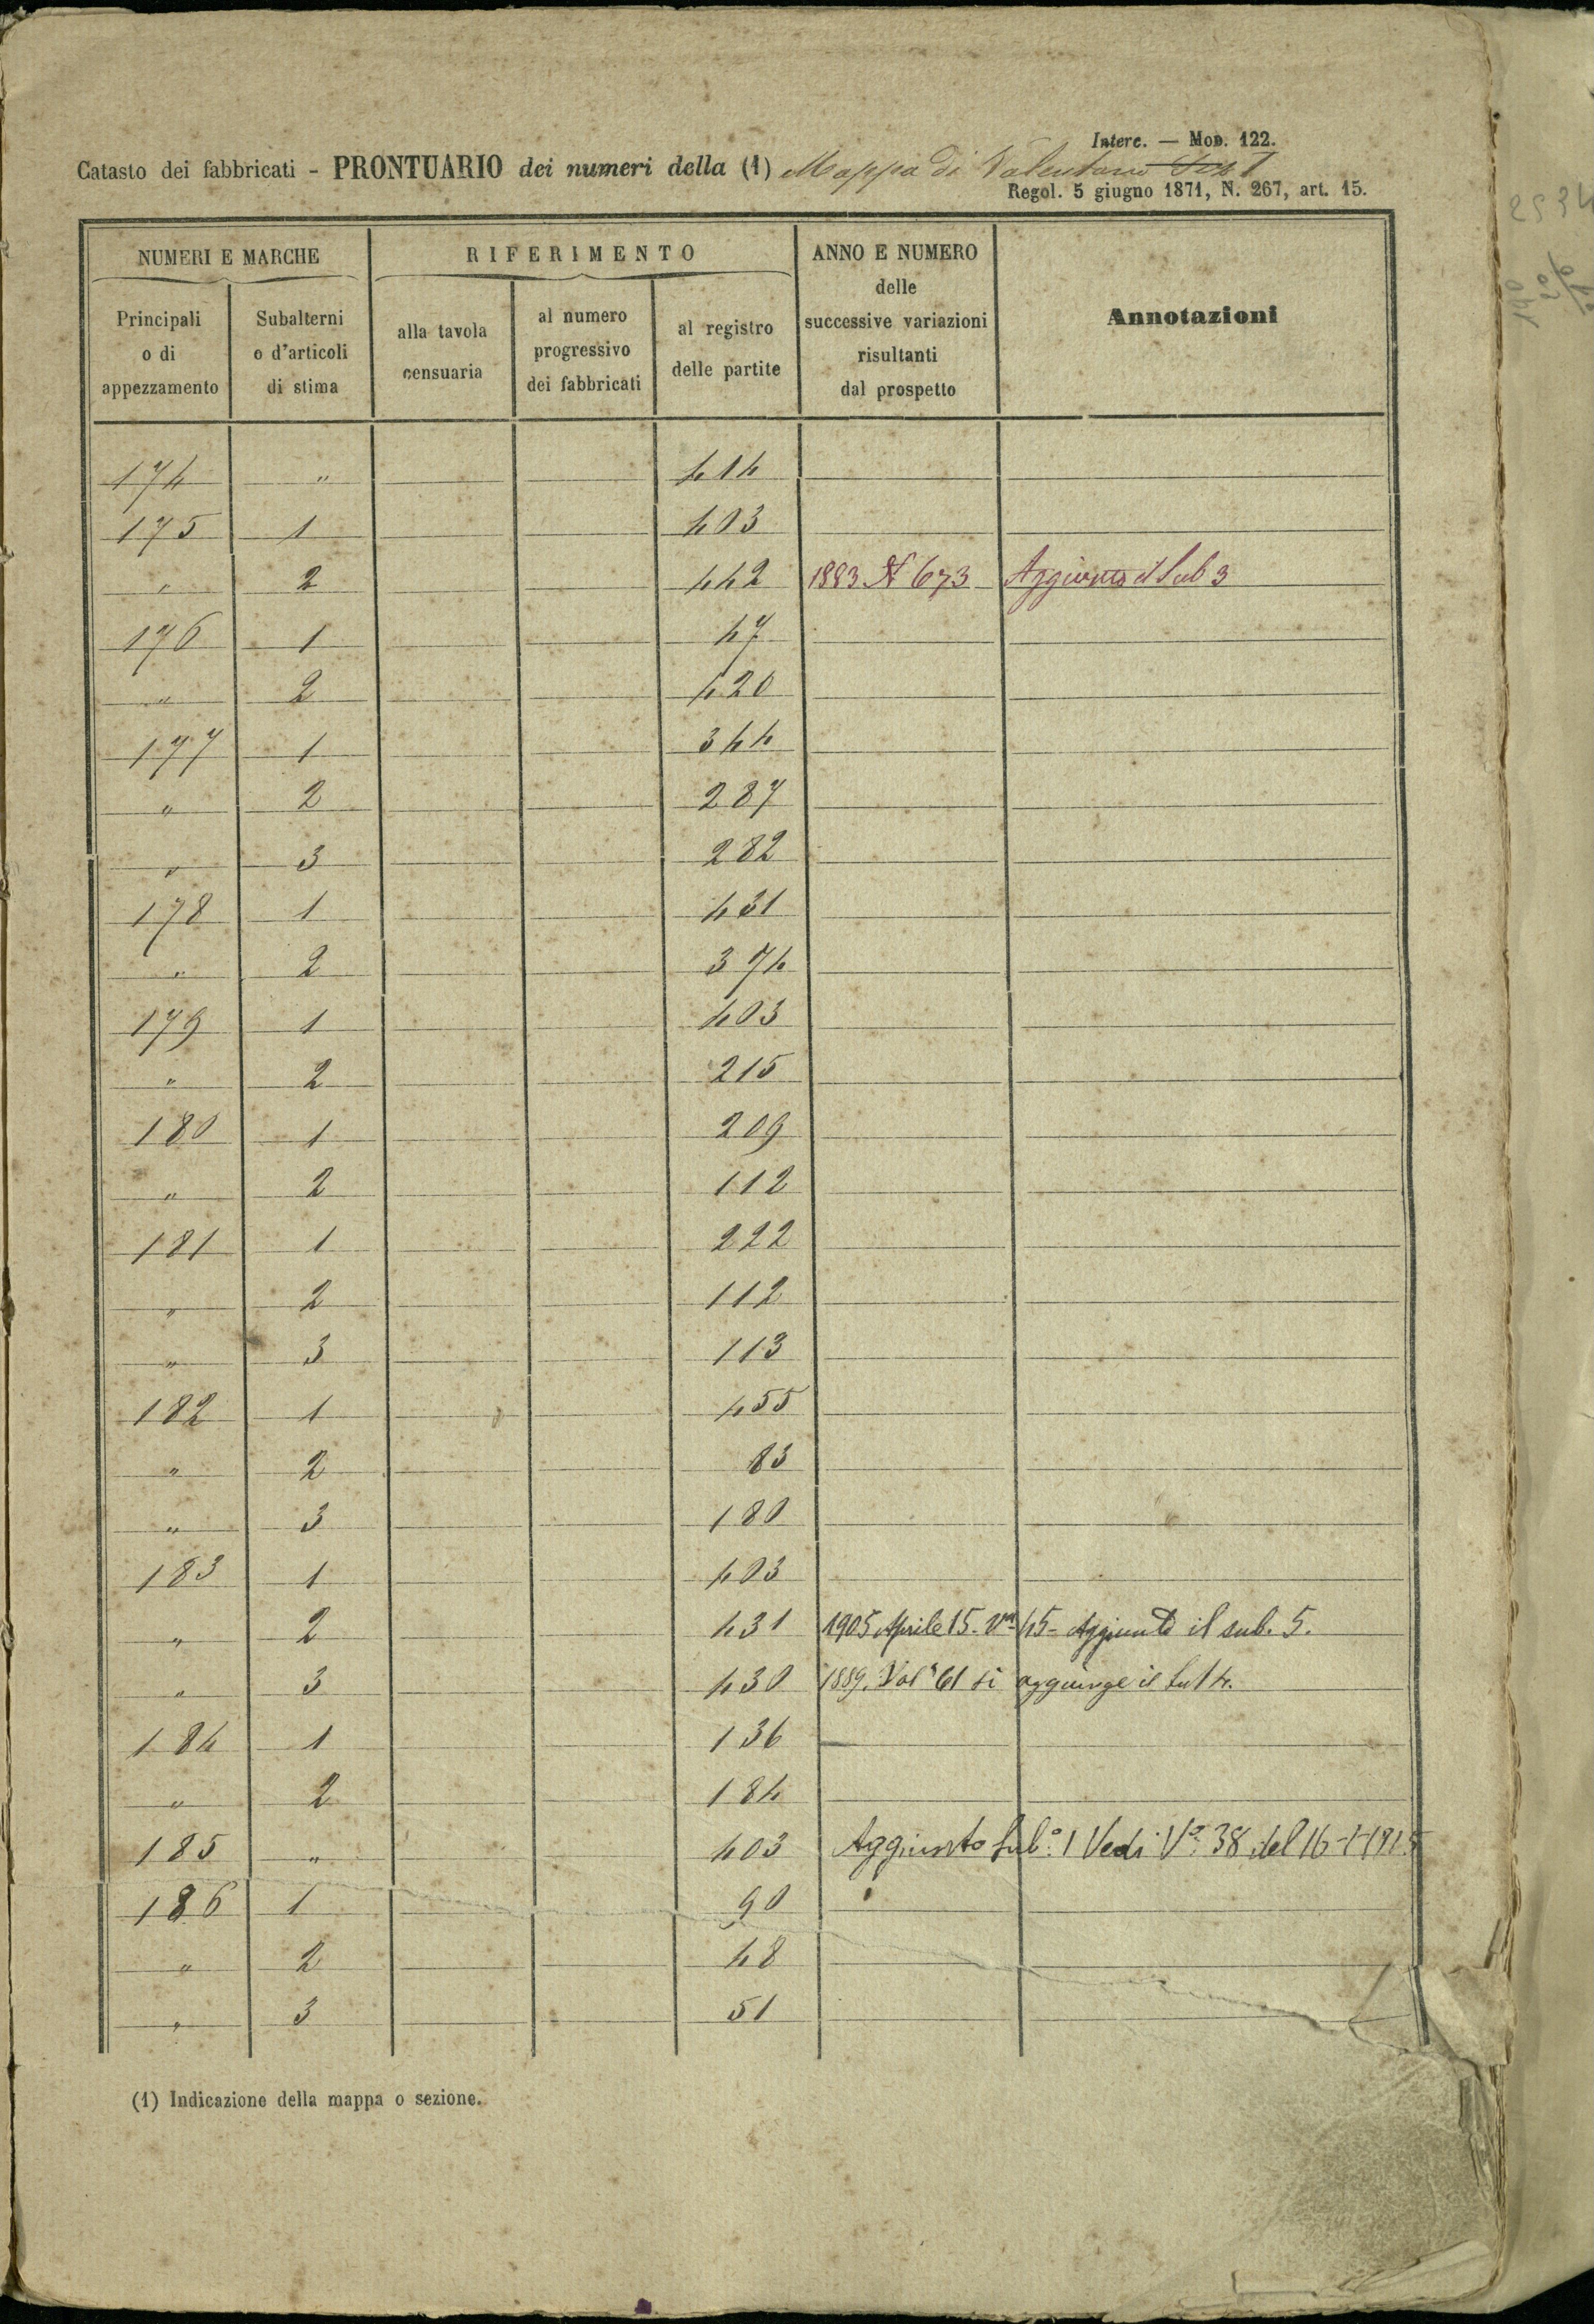 Interc. — Mod. 122.
Catasto dei fabbricati - PRONTUARIO dei numeri della (1) Mappa di Valentano
Regol. 5 giugno 1871, N. 267, art. 15.
NUMERI E MARCHE
RIFERIMENTO
ANNO E NUMERO delle successive variazioni risultanti dal prospetto
Annotazioni
Principali o di appezzamento
Subalterni o d'articoli di stima
alla tavola censuaria
al numero progressivo dei fabbricati
al registro delle partite
174 " 414
175 1 403
" 2 442 1883 N 673 Aggiunto il Sub 3
176 1 47
" 2 420
177 1 344
" 2 287
" 3 282
178 1 431
" 2 374
179 1 403
" 2 215
180 1 209
" 2 112
181 1 222
" 2 112
" 3 113
182 1 455
" 2 83
" 3 180
183 1 403
" 2 431 1905 Aprile 15. Vra 45 - Aggiunto il sub. 5.
" 3 430 1889. Vola 61 si aggiunge il Sub 4.
184 1 136
" 2 184
185 " 403 Aggiunto Subo. 1 Vedi Va. 38 del 16-1-1915
186 1 90
" 2 48
" 3 51
(1) Indicazione della mappa o sezione.